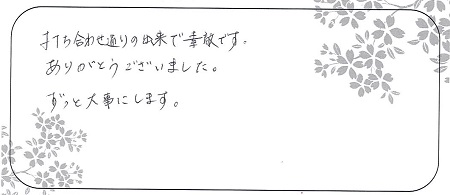 打ち合わせ通りの出来で素敵です。
ありがとうございました。
ずっと大事にします。